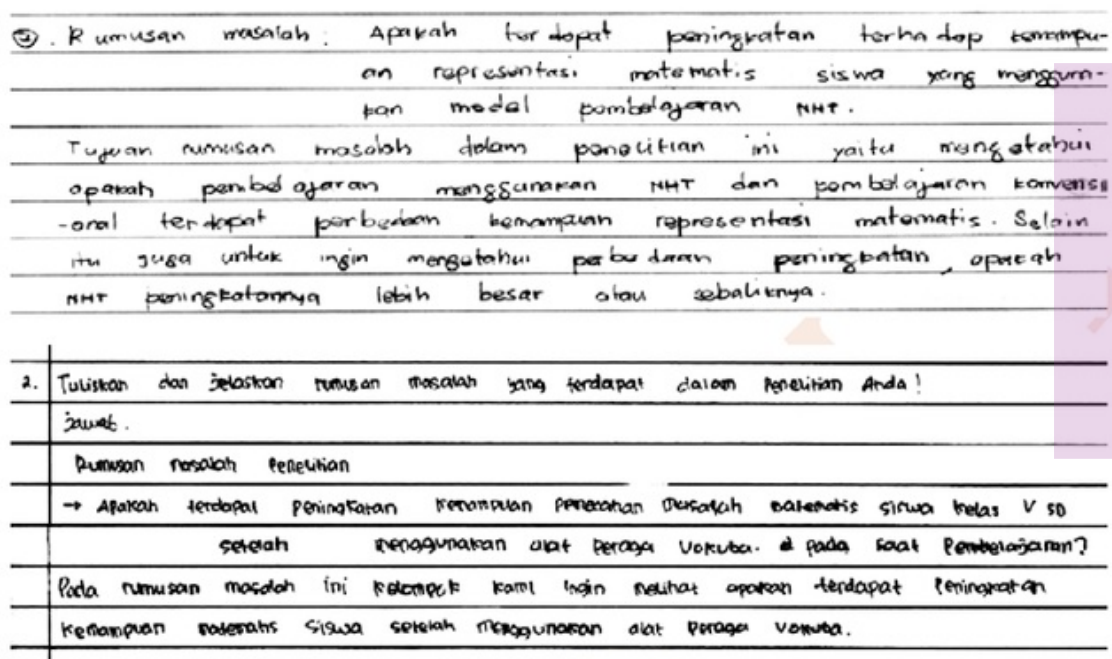 2. Rumusan masalah : Apakah terdapat peningkatan terhadap kemampu-
an representasi matematis siswa yang mengguna-
kan model pembelajaran NHT.
Tujuan rumusan masalah dalam penelitian ini yaitu mengetahui
apakah pembelajaran menggunakan NHT dan pembelajaran konvensi
-onal terdapat perbedaan kemampuan representasi matematis. Selain
itu juga untuk ingin mengetahui perbedaan peningkatan, apakah
NHT peningkatannya lebih besar atau sebaliknya.
2. Tuliskan dan jelaskan rumusan masalah yang terdapat dalam Penelitian Anda!
Jawab.
Rumusan masalah Penelitian
→ Apakah terdapat Peningkatan Kemampuan Pemecahan Masalah matematis siswa kelas V SD
setelah menggunakan alat Peraga Vokuba. pada saat Pembelajaran?
Pada rumusan masalah ini kelompok kami ingin melihat apakah terdapat Peningkatan
Kemampuan matematis siswa setelah menggunakan alat Peraga Vokuba.